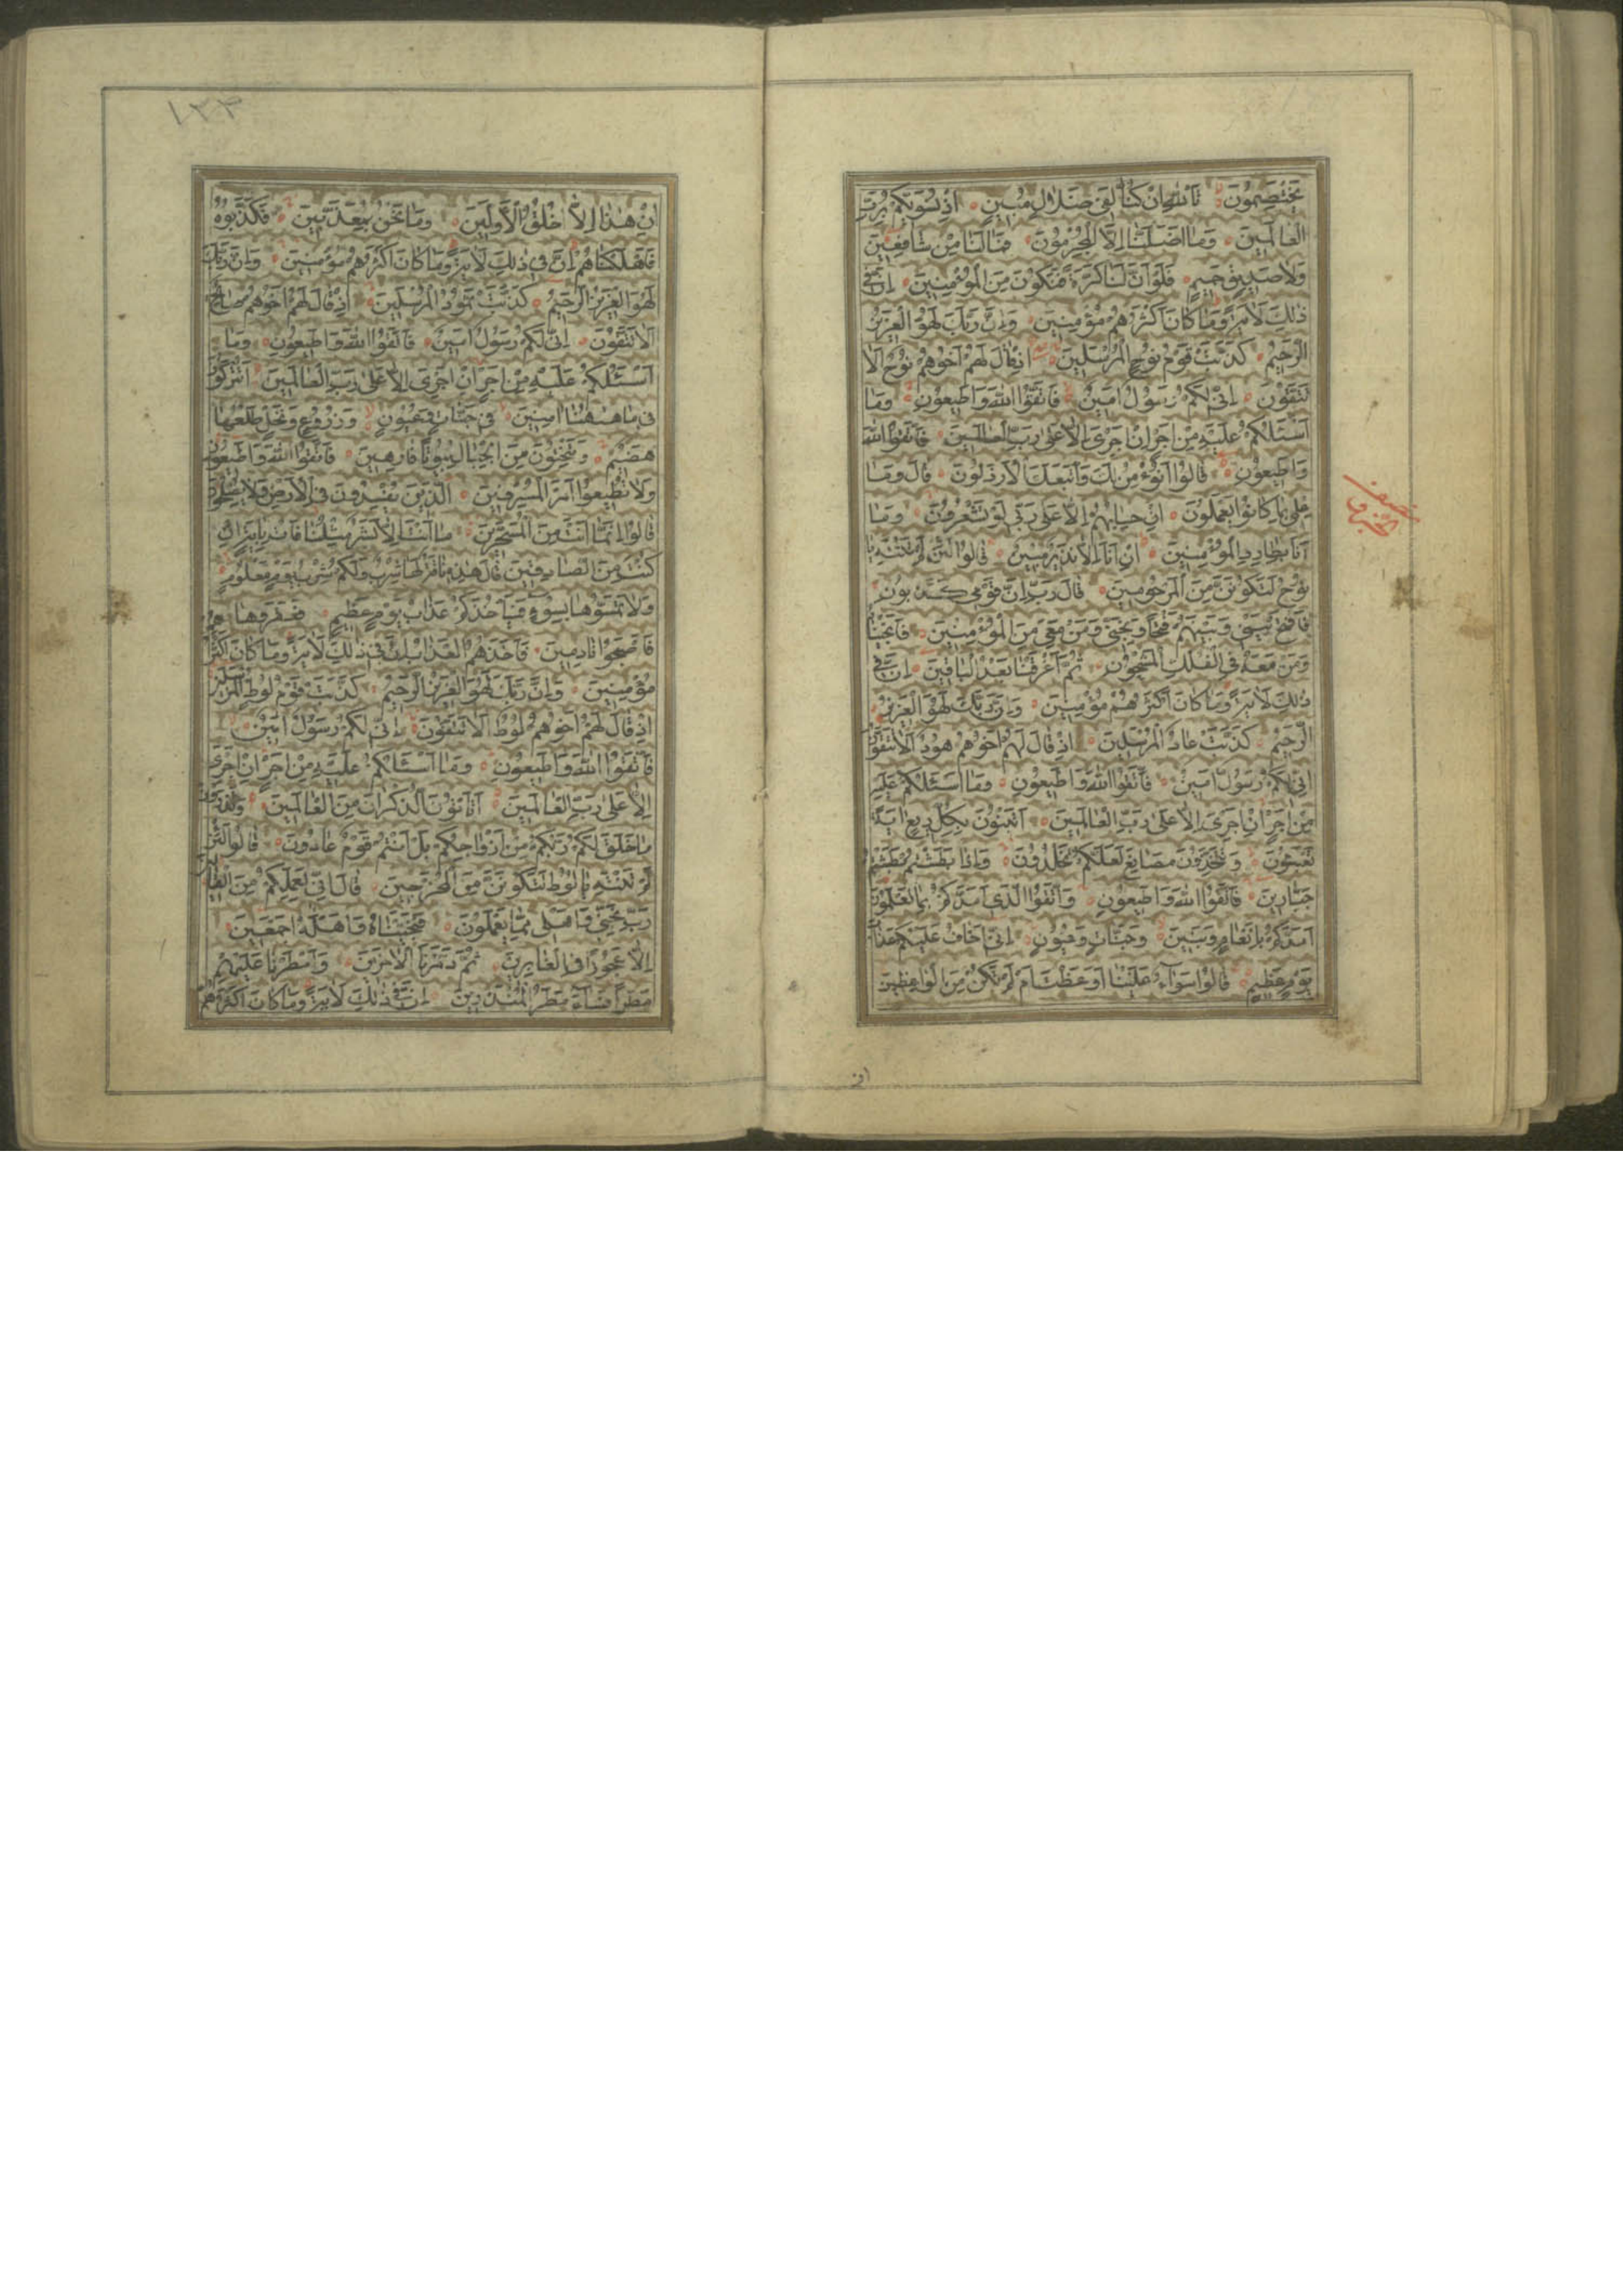 يَخْتَصِمُونَ تَاللّٰهِ اِنْ كُنَّا لَفِى ضَلَالٍ مُبِينٍ اِذْ نُسَوِّيكُمْ بِرَبِّ
الْعَالَمِينَ وَمَا اَضَلَّنَا اِلَّا الْمُجْرِمُونَ فَمَا لَنَا مِنْ شَافِعِينَ
وَلَا صَدِيقٍ حَمِيمٍ فَلَوْ اَنَّ لَنَا كَرَّةً فَنَكُونَ مِنَ الْمُؤْمِنِينَ اِنَّ فِى
ذٰلِكَ لَاٰيَةً وَمَا كَانَ اَكْثَرُهُمْ مُؤْمِنِينَ وَاِنَّ رَبَّكَ لَهُوَ الْعَزِيزُ
الرَّحِيمُ كَذَّبَتْ قَوْمُ نُوحٍ الْمُرْسَلِينَ اِذْ قَالَ لَهُمْ اَخُوهُمْ نُوحٌ اَلَا
تَتَّقُونَ اِنِّى لَكُمْ رَسُولٌ اَمِينٌ فَاتَّقُوا اللّٰهَ وَاَطِيعُونِ وَمَا
اَسْئَلُكُمْ عَلَيْهِ مِنْ اَجْرٍ اِنْ اَجْرِىَ اِلَّا عَلٰى رَبِّ الْعَالَمِينَ فَاتَّقُوا اللّٰهَ
وَاَطِيعُونِ قَالُوا اَنُؤْمِنُ لَكَ وَاتَّبَعَكَ الْاَرْذَلُونَ قَالَ وَمَا
عِلْمِى بِمَا كَانُوا يَعْمَلُونَ اِنْ حِسَابُهُمْ اِلَّا عَلٰى رَبِّى لَوْ تَشْعُرُونَ وَمَا
اَنَا بِطَارِدِ الْمُؤْمِنِينَ اِنْ اَنَا اِلَّا نَذِيرٌ مُبِينٌ قَالُوا لَئِنْ لَمْ تَنْتَهِ يَا
نُوحُ لَتَكُونَنَّ مِنَ الْمَرْجُومِينَ قَالَ رَبِّ اِنَّ قَوْمِى كَذَّبُونِ
فَافْتَحْ بَيْنِى وَبَيْنَهُمْ فَتْحًا وَنَجِّنِى وَمَنْ مَعِىَ مِنَ الْمُؤْمِنِينَ فَاَنْجَيْنَاهُ
وَمَنْ مَعَهُ فِى الْفُلْكِ الْمَشْحُونِ ثُمَّ اَغْرَقْنَا بَعْدُ الْبَاقِينَ اِنَّ فِى
ذٰلِكَ لَاٰيَةً وَمَا كَانَ اَكْثَرُهُمْ مُؤْمِنِينَ وَاِنَّ رَبَّكَ لَهُوَ الْعَزِيزُ
الرَّحِيمُ كَذَّبَتْ عَادٌ الْمُرْسَلِينَ اِذْ قَالَ لَهُمْ اَخُوهُمْ هُودٌ اَلَا تَتَّقُونَ
اِنِّى لَكُمْ رَسُولٌ اَمِينٌ فَاتَّقُوا اللّٰهَ وَاَطِيعُونِ وَمَا اَسْئَلُكُمْ عَلَيْهِ
مِنْ اَجْرٍ اِنْ اَجْرِىَ اِلَّا عَلٰى رَبِّ الْعَالَمِينَ اَتَبْنُونَ بِكُلِّ رِيعٍ اٰيَةً
تَعْبَثُونَ وَتَتَّخِذُونَ مَصَانِعَ لَعَلَّكُمْ تَخْلُدُونَ وَاِذَا بَطَشْتُمْ بَطَشْتُمْ
جَبَّارِينَ فَاتَّقُوا اللّٰهَ وَاَطِيعُونِ وَاتَّقُوا الَّذِى اَمَدَّكُمْ بِمَا تَعْلَمُونَ
اَمَدَّكُمْ بِاَنْعَامٍ وَبَنِينَ وَجَنَّاتٍ وَعُيُونٍ اِنِّى اَخَافُ عَلَيْكُمْ عَذَابَ
يَوْمٍ عَظِيمٍ قَالُوا سَوَاءٌ عَلَيْنَا اَوَعَظْتَ اَمْ لَمْ تَكُنْ مِنَ الْوَاعِظِينَ
ان
١٢٣
اِنْ هٰذَا اِلَّا خُلُقُ الْاَوَّلِينَ وَمَا نَحْنُ بِمُعَذَّبِينَ فَكَذَّبُوهُ
فَاَهْلَكْنَاهُمْ اِنَّ فِى ذٰلِكَ لَاٰيَةً وَمَا كَانَ اَكْثَرُهُمْ مُؤْمِنِينَ وَاِنَّ رَبَّكَ
لَهُوَ الْعَزِيزُ الرَّحِيمُ كَذَّبَتْ ثَمُودُ الْمُرْسَلِينَ اِذْ قَالَ لَهُمْ اَخُوهُمْ صَالِحٌ
اَلَا تَتَّقُونَ اِنِّى لَكُمْ رَسُولٌ اَمِينٌ فَاتَّقُوا اللّٰهَ وَاَطِيعُونِ وَمَا
اَسْئَلُكُمْ عَلَيْهِ مِنْ اَجْرٍ اِنْ اَجْرِىَ اِلَّا عَلٰى رَبِّ الْعَالَمِينَ اَتُتْرَكُونَ
فِى مَا هٰهُنَا اٰمِنِينَ فِى جَنَّاتٍ وَعُيُونٍ وَزُرُوعٍ وَنَخْلٍ طَلْعُهَا
هَضِيمٌ وَتَنْحِتُونَ مِنَ الْجِبَالِ بُيُوتًا فَارِهِينَ فَاتَّقُوا اللّٰهَ وَاَطِيعُونِ
وَلَا تُطِيعُوا اَمْرَ الْمُسْرِفِينَ الَّذِينَ يُفْسِدُونَ فِى الْاَرْضِ وَلَا يُصْلِحُونَ
قَالُوا اِنَّمَا اَنْتَ مِنَ الْمُسَحَّرِينَ مَا اَنْتَ اِلَّا بَشَرٌ مِثْلُنَا فَاْتِ بِاٰيَةٍ اِنْ
كُنْتَ مِنَ الصَّادِقِينَ قَالَ هٰذِهِ نَاقَةٌ لَهَا شِرْبٌ وَلَكُمْ شِرْبُ يَوْمٍ مَعْلُومٍ
وَلَا تَمَسُّوهَا بِسُوءٍ فَيَاْخُذَكُمْ عَذَابُ يَوْمٍ عَظِيمٍ فَعَقَرُوهَا
فَاَصْبَحُوا نَادِمِينَ فَاَخَذَهُمُ الْعَذَابُ اِنَّ فِى ذٰلِكَ لَاٰيَةً وَمَا كَانَ اَكْثَرُهُمْ
مُؤْمِنِينَ وَاِنَّ رَبَّكَ لَهُوَ الْعَزِيزُ الرَّحِيمُ كَذَّبَتْ قَوْمُ لُوطٍ الْمُرْسَلِينَ
اِذْ قَالَ لَهُمْ اَخُوهُمْ لُوطٌ اَلَا تَتَّقُونَ اِنِّى لَكُمْ رَسُولٌ اَمِينٌ
فَاتَّقُوا اللّٰهَ وَاَطِيعُونِ وَمَا اَسْئَلُكُمْ عَلَيْهِ مِنْ اَجْرٍ اِنْ اَجْرِىَ
اِلَّا عَلٰى رَبِّ الْعَالَمِينَ اَتَاْتُونَ الذُّكْرَانَ مِنَ الْعَالَمِينَ وَتَذَرُونَ
مَا خَلَقَ لَكُمْ رَبُّكُمْ مِنْ اَزْوَاجِكُمْ بَلْ اَنْتُمْ قَوْمٌ عَادُونَ قَالُوا لَئِنْ
لَمْ تَنْتَهِ يَا لُوطُ لَتَكُونَنَّ مِنَ الْمُخْرَجِينَ قَالَ اِنِّى لِعَمَلِكُمْ مِنَ الْقَالِينَ
رَبِّ نَجِّنِى وَاَهْلِى مِمَّا يَعْمَلُونَ فَنَجَّيْنَاهُ وَاَهْلَهُ اَجْمَعِينَ
اِلَّا عَجُوزًا فِى الْغَابِرِينَ ثُمَّ دَمَّرْنَا الْاٰخَرِينَ وَاَمْطَرْنَا عَلَيْهِمْ
مَطَرًا فَسَاءَ مَطَرُ الْمُنْذَرِينَ اِنَّ فِى ذٰلِكَ لَاٰيَةً وَمَا كَانَ اَكْثَرُهُمْ